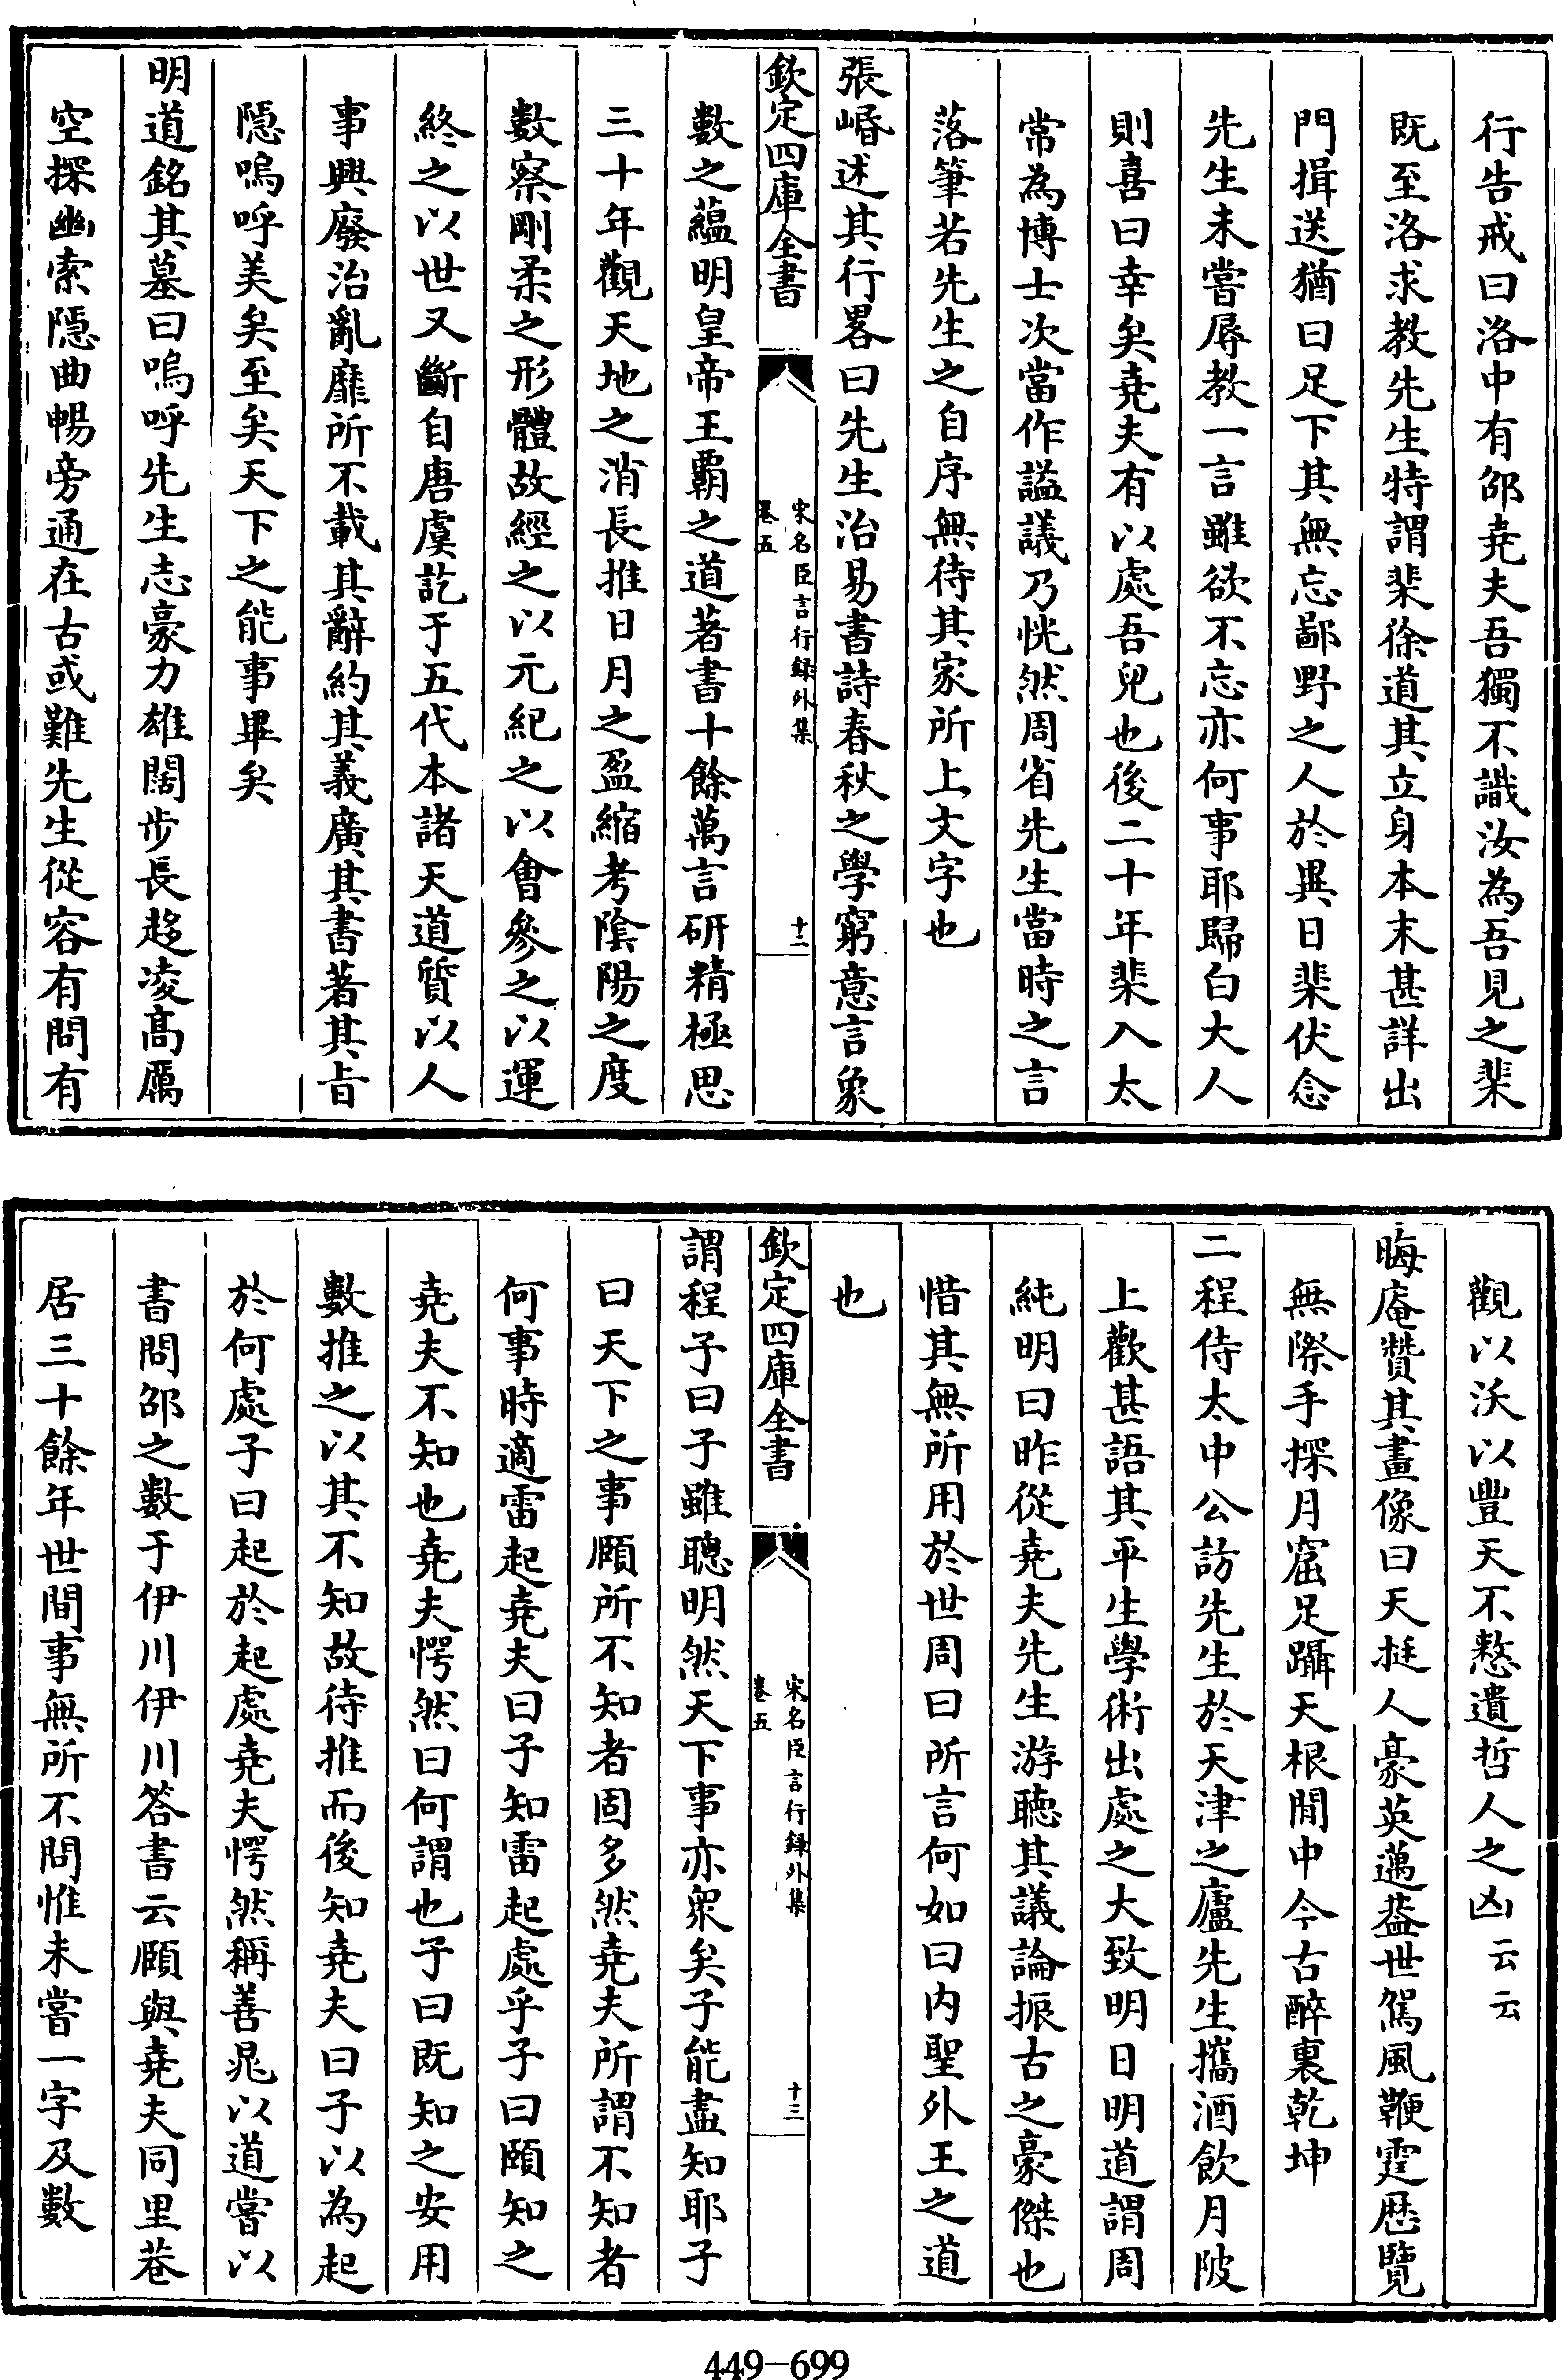 行告戒曰洛中有邵堯夫吾獨不識汝為吾見之棐
既至洛求教先生特謂棐徐道其立身本末甚詳出
門揖送猶曰足下其無忘鄙野之人於異日棐伏念
先生未嘗辱教一言雖欲不忘亦何事耶歸白大人
則喜曰幸矣堯夫有以處吾兒也後二十年棐入太
常為博士次當作謚議乃恍然周省先生當時之言
落筆若先生之自序無待其家所上文字也
張㟭述其行畧曰先生治易書詩春秋之學窮意言象
欽定四庫全書
宋名臣言行録外集
卷五
十二
數之蘊明皇帝王霸之道著書十餘萬言研精極思
三十年觀天地之消長推日月之盈縮考陰陽之度
數察剛柔之形體故經之以元紀之以會參之以運
終之以世又斷自唐虞訖于五代本諸天道質以人
事興廢治亂靡所不載其辭約其義廣其書著其旨
隱嗚呼美矣至矣天下之能事畢矣
明道銘其墓曰嗚呼先生志豪力雄闊步長趍凌高厲
空探幽索隱曲暢旁通在古或難先生從容有問有
觀以沃以豐天不憗遺哲人之凶云云
晦庵贊其畫像曰天挺人豪英邁葢世駕風鞭霆歷覽
無際手探月窟足躡天根閒中今古醉裏乾坤
二程侍太中公訪先生於天津之廬先生攜酒飲月陂
上歡甚語其平生學術出處之大致明日明道謂周
純明曰昨從堯夫先生游聽其議論振古之豪傑也
惜其無所用於世周曰所言何如曰内聖外王之道
也
欽定四庫全書
宋名臣言行録外集
卷五
十三
謂程子曰子雖聰明然天下事亦衆矣子能盡知耶子
曰天下之事頤所不知者固多然堯夫所謂不知者
何事時適雷起堯夫曰子知雷起處乎子曰頤知之
堯夫不知也堯夫愕然曰何謂也子曰既知之安用
數推之以其不知故待推而後知堯夫曰子以為起
於何處子曰起於起處堯夫愕然稱善晁以道嘗以
書問邵之數于伊川伊川答書云頤與堯夫同里巷
居三十餘年世間事無所不問惟未嘗一字及數
449-699